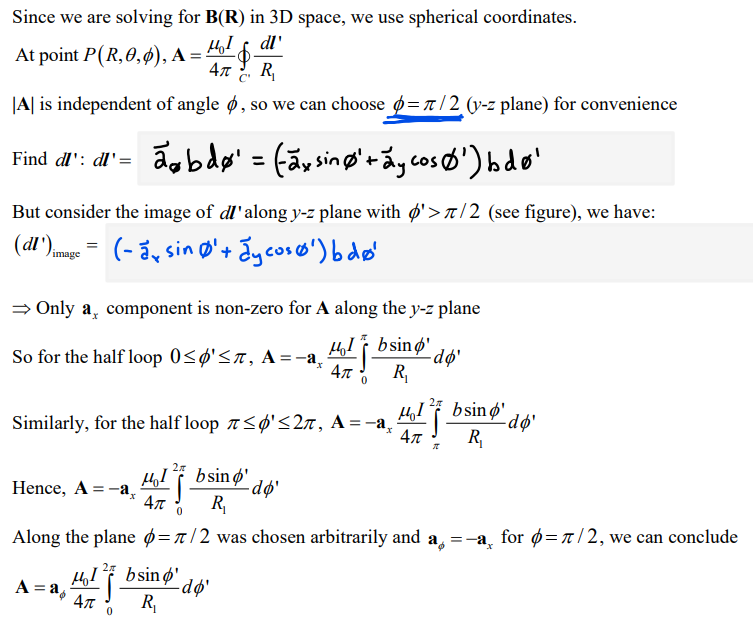 Since we are solving for B(R) in 3D space, we use spherical coordinates.
At point P(R,θ,ϕ), A = μ₀I/4π ∮_C' dl'/R₁
|A| is independent of angle ϕ, so we can choose ϕ = π/2 (y-z plane) for convenience
Find dl': dl' = a⃗_ø b dø' = (-a⃗ₓ sin ø' + a⃗_y cos ø') b dø'
But consider the image of dl' along y-z plane with ϕ' > π/2 (see figure), we have:
(dl')_image = (- a⃗ₓ sin ø' + a⃗_y cos ø') b dø'
⇒ Only aₓ component is non-zero for A along the y-z plane
So for the half loop 0 ≤ ϕ' ≤ π, A = −aₓ μ₀I/4π ∫₀^π b sin ϕ'/R₁ dϕ'
Similarly, for the half loop π ≤ ϕ' ≤ 2π, A = −aₓ μ₀I/4π ∫_π^2π b sin ϕ'/R₁ dϕ'
Hence, A = −aₓ μ₀I/4π ∫₀^2π b sin ϕ'/R₁ dϕ'
Along the plane ϕ = π/2 was chosen arbitrarily and a_ϕ = −aₓ for ϕ = π/2, we can conclude
A = a_ϕ μ₀I/4π ∫₀^2π b sin ϕ'/R₁ dϕ'